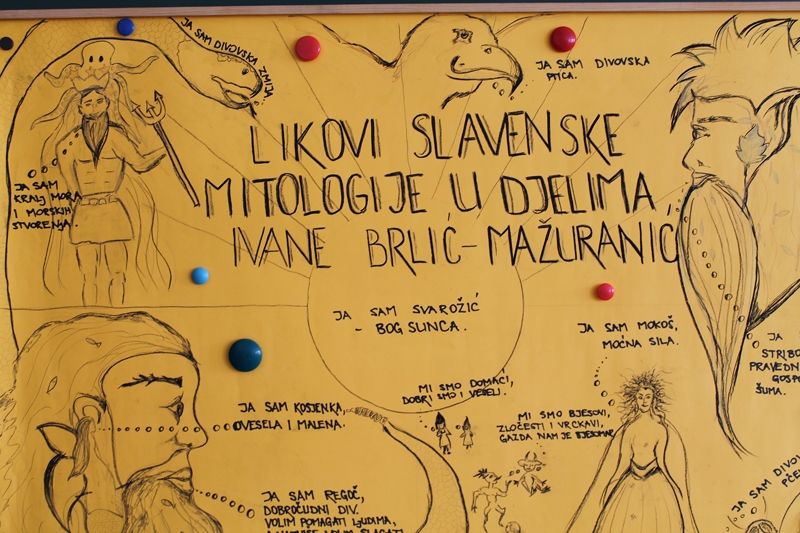 JA SAM DIVOVSKA ZMIJA
JA SAM DIVOVSKA
PTICA.
LIKOVI SLAVENSKE
MITOLOGIJE U DJELIMA
IVANE BRLIĆ-MAŽURANIĆ
JA SAM
KRALJ MORA
I MORSKIH
STVORENJA.
JA SAM SVAROŽIĆ
- BOG SUNCA.
JA SAM MOKOŠ,
MOĆNA SILA.
JA
STRIBO
PRAVEDN
GOSP
ŠUMA.
MI SMO DOMAĆI,
DOBRI SMO I VESELI.
JA SAM KOSJENKA,
VESELA I MALENA.
MI SMO BJESOVI,
ZLOČESTI I VRCKAVI,
GAZDA NAM JE BJESOMAR
JA SAM REGOČ,
DOBROĆUDNI DIV.
VOLIM POMAGATI LJUDIMA,
VOLIM SLAGATI
JA SAM DIVO
PČE